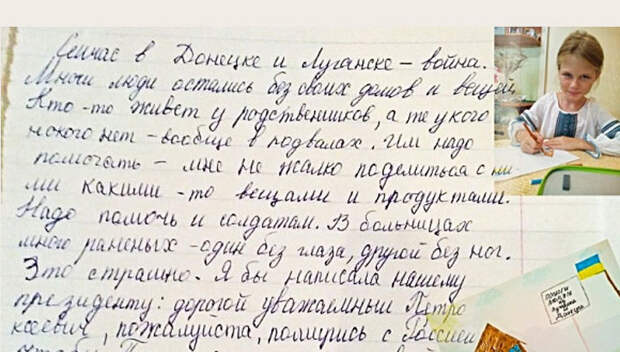 Сейчас в Донецке и Луганске – война.
Многи люди остались без своих домов и вещей
Кто-то живет у родственников, а те у кого
некого нет – вообще в подвалах. Им надо
помогать – мне не жалко поделиться с ни
ми какими-то вещами и продуктами.
Надо помочь и солдатам. В больницах
много раненых – один без глаза, другой без ног.
Это страшно. Я бы написала нашему
президенту: дорогой уважаемный Петро
ксеевич, пожалуйста, помирись с Россией
чтобы
ПОМОГИ
ЛЮДЯМ